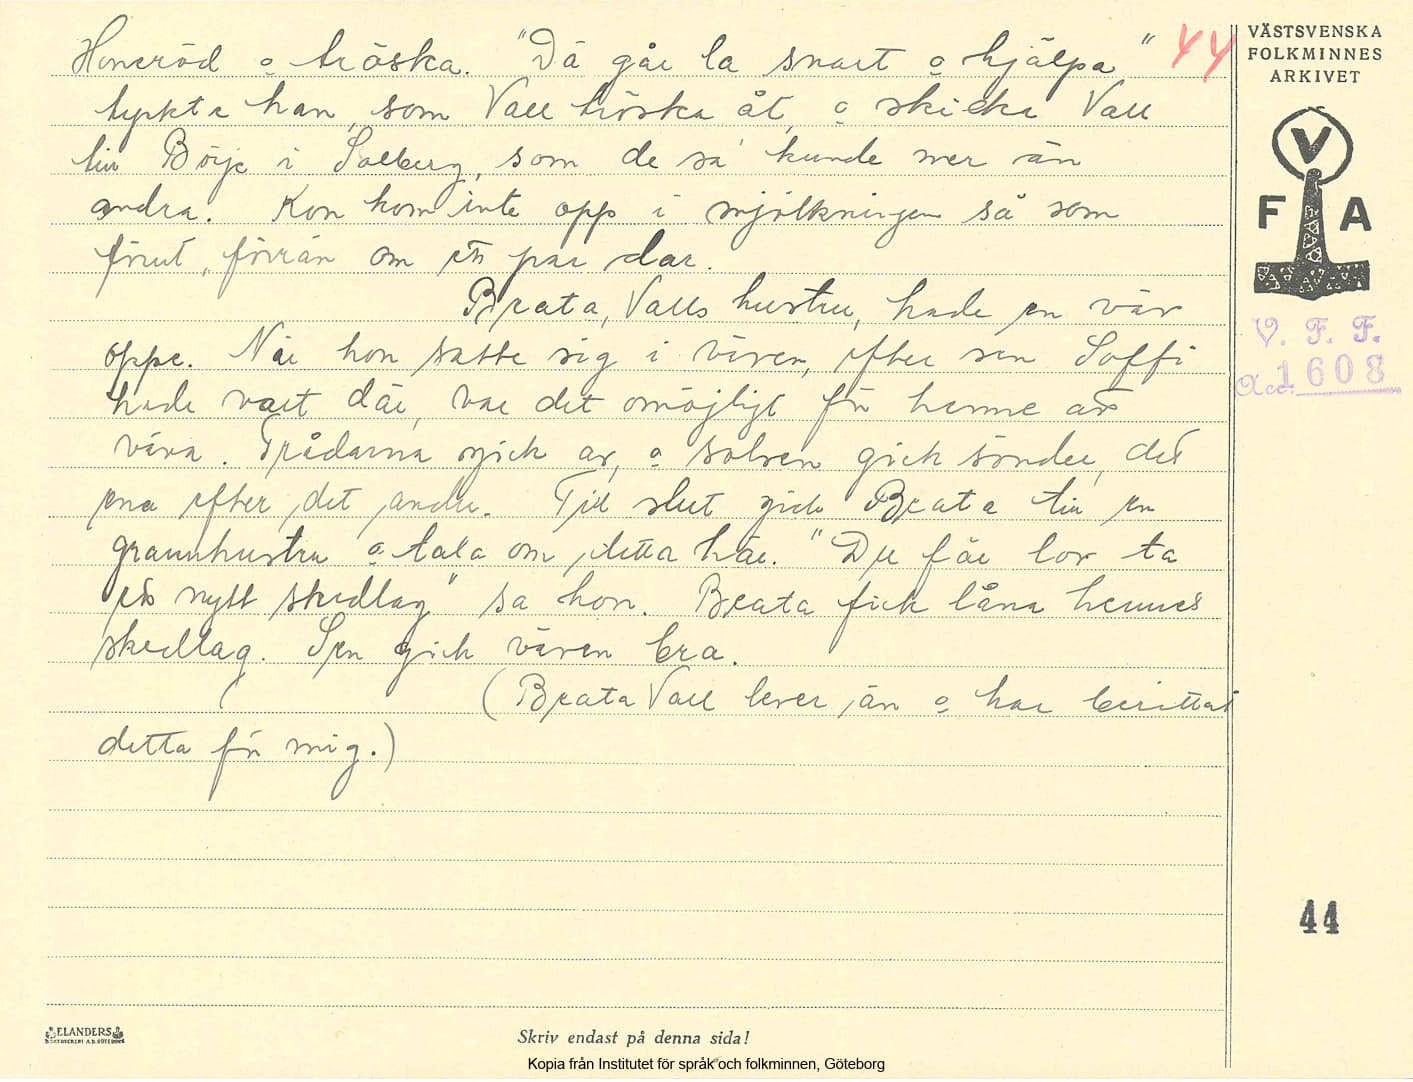 Honeröd o tröska. "Dä går la snart o hjälpa"
tyckte han, som Vall tröska åt, o skicka Vall
till Börje i Solberg, som de sa' kunde mer än
andra. Kon kom inte opp i mjölkningen så som
förut, förrän om ett par dar.
Beata, Valls hustru, hade en väv
oppe. När hon satte sig i väven, efter sen Soffi
hade vart där, var det omöjligt för henne att
väva. Trådarna gick av, o solven gick sönder, det
ena efter det andra. Till slut gick Beata till en
grannhustru o tala om detta här. "Du får lov ta
ett nytt skedlag" sa hon. Beata fick låna hennes
skedlag. Sen gick väven bra.
(Beata Vall lever än o har berättat
detta för mig.)
44
VÄSTSVENSKA
FOLKMINNES
ARKIVET
V
F A
V. F. F.
Acc. 1608
44
ELANDERS
BOKTRYCKERI A.B. GÖTEBORG
Skriv endast på denna sida!
Kopia från Institutet för språk och folkminnen, Göteborg